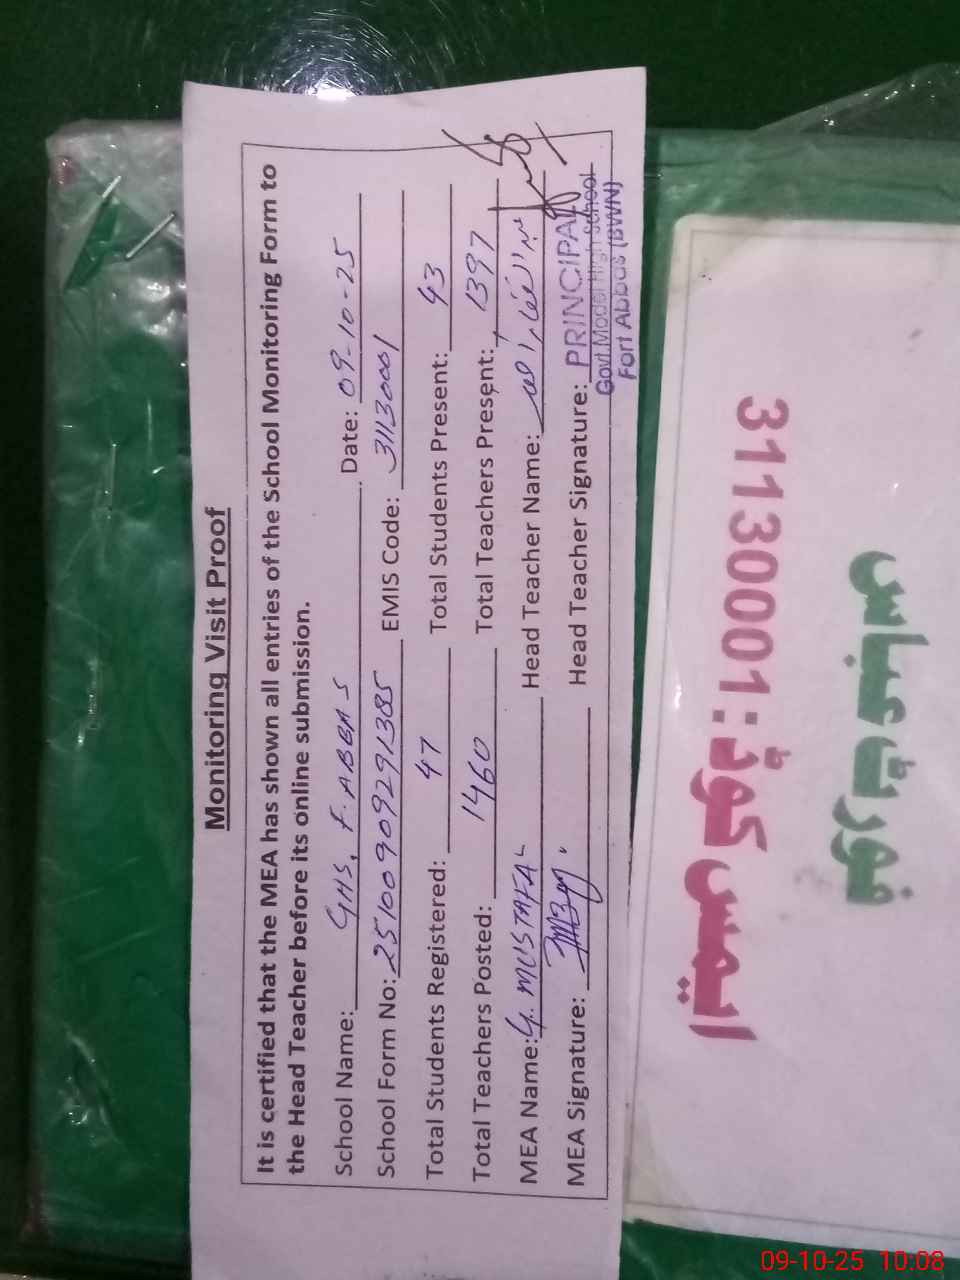 Monitoring Visit Proof
It is certified that the MEA has shown all entries of the School Monitoring Form to
the Head Teacher before its online submission.
School Name: GHS, F. ABBAS Date: 09-10-25
School Form No: 25100909291385 EMIS Code: 31130001
Total Students Registered: 47 Total Students Present: 43
Total Teachers Posted: 1460 Total Teachers Present: 1397
MEA Name: G. MUSTAFA Head Teacher Name:
MEA Signature: Head Teacher Signature:
PRINCIPAL
Govt. Model High School
Fort Abbas (BWN)
ایمس کوڈ: 31130001
فورٹ عباس
09-10-25 10:08